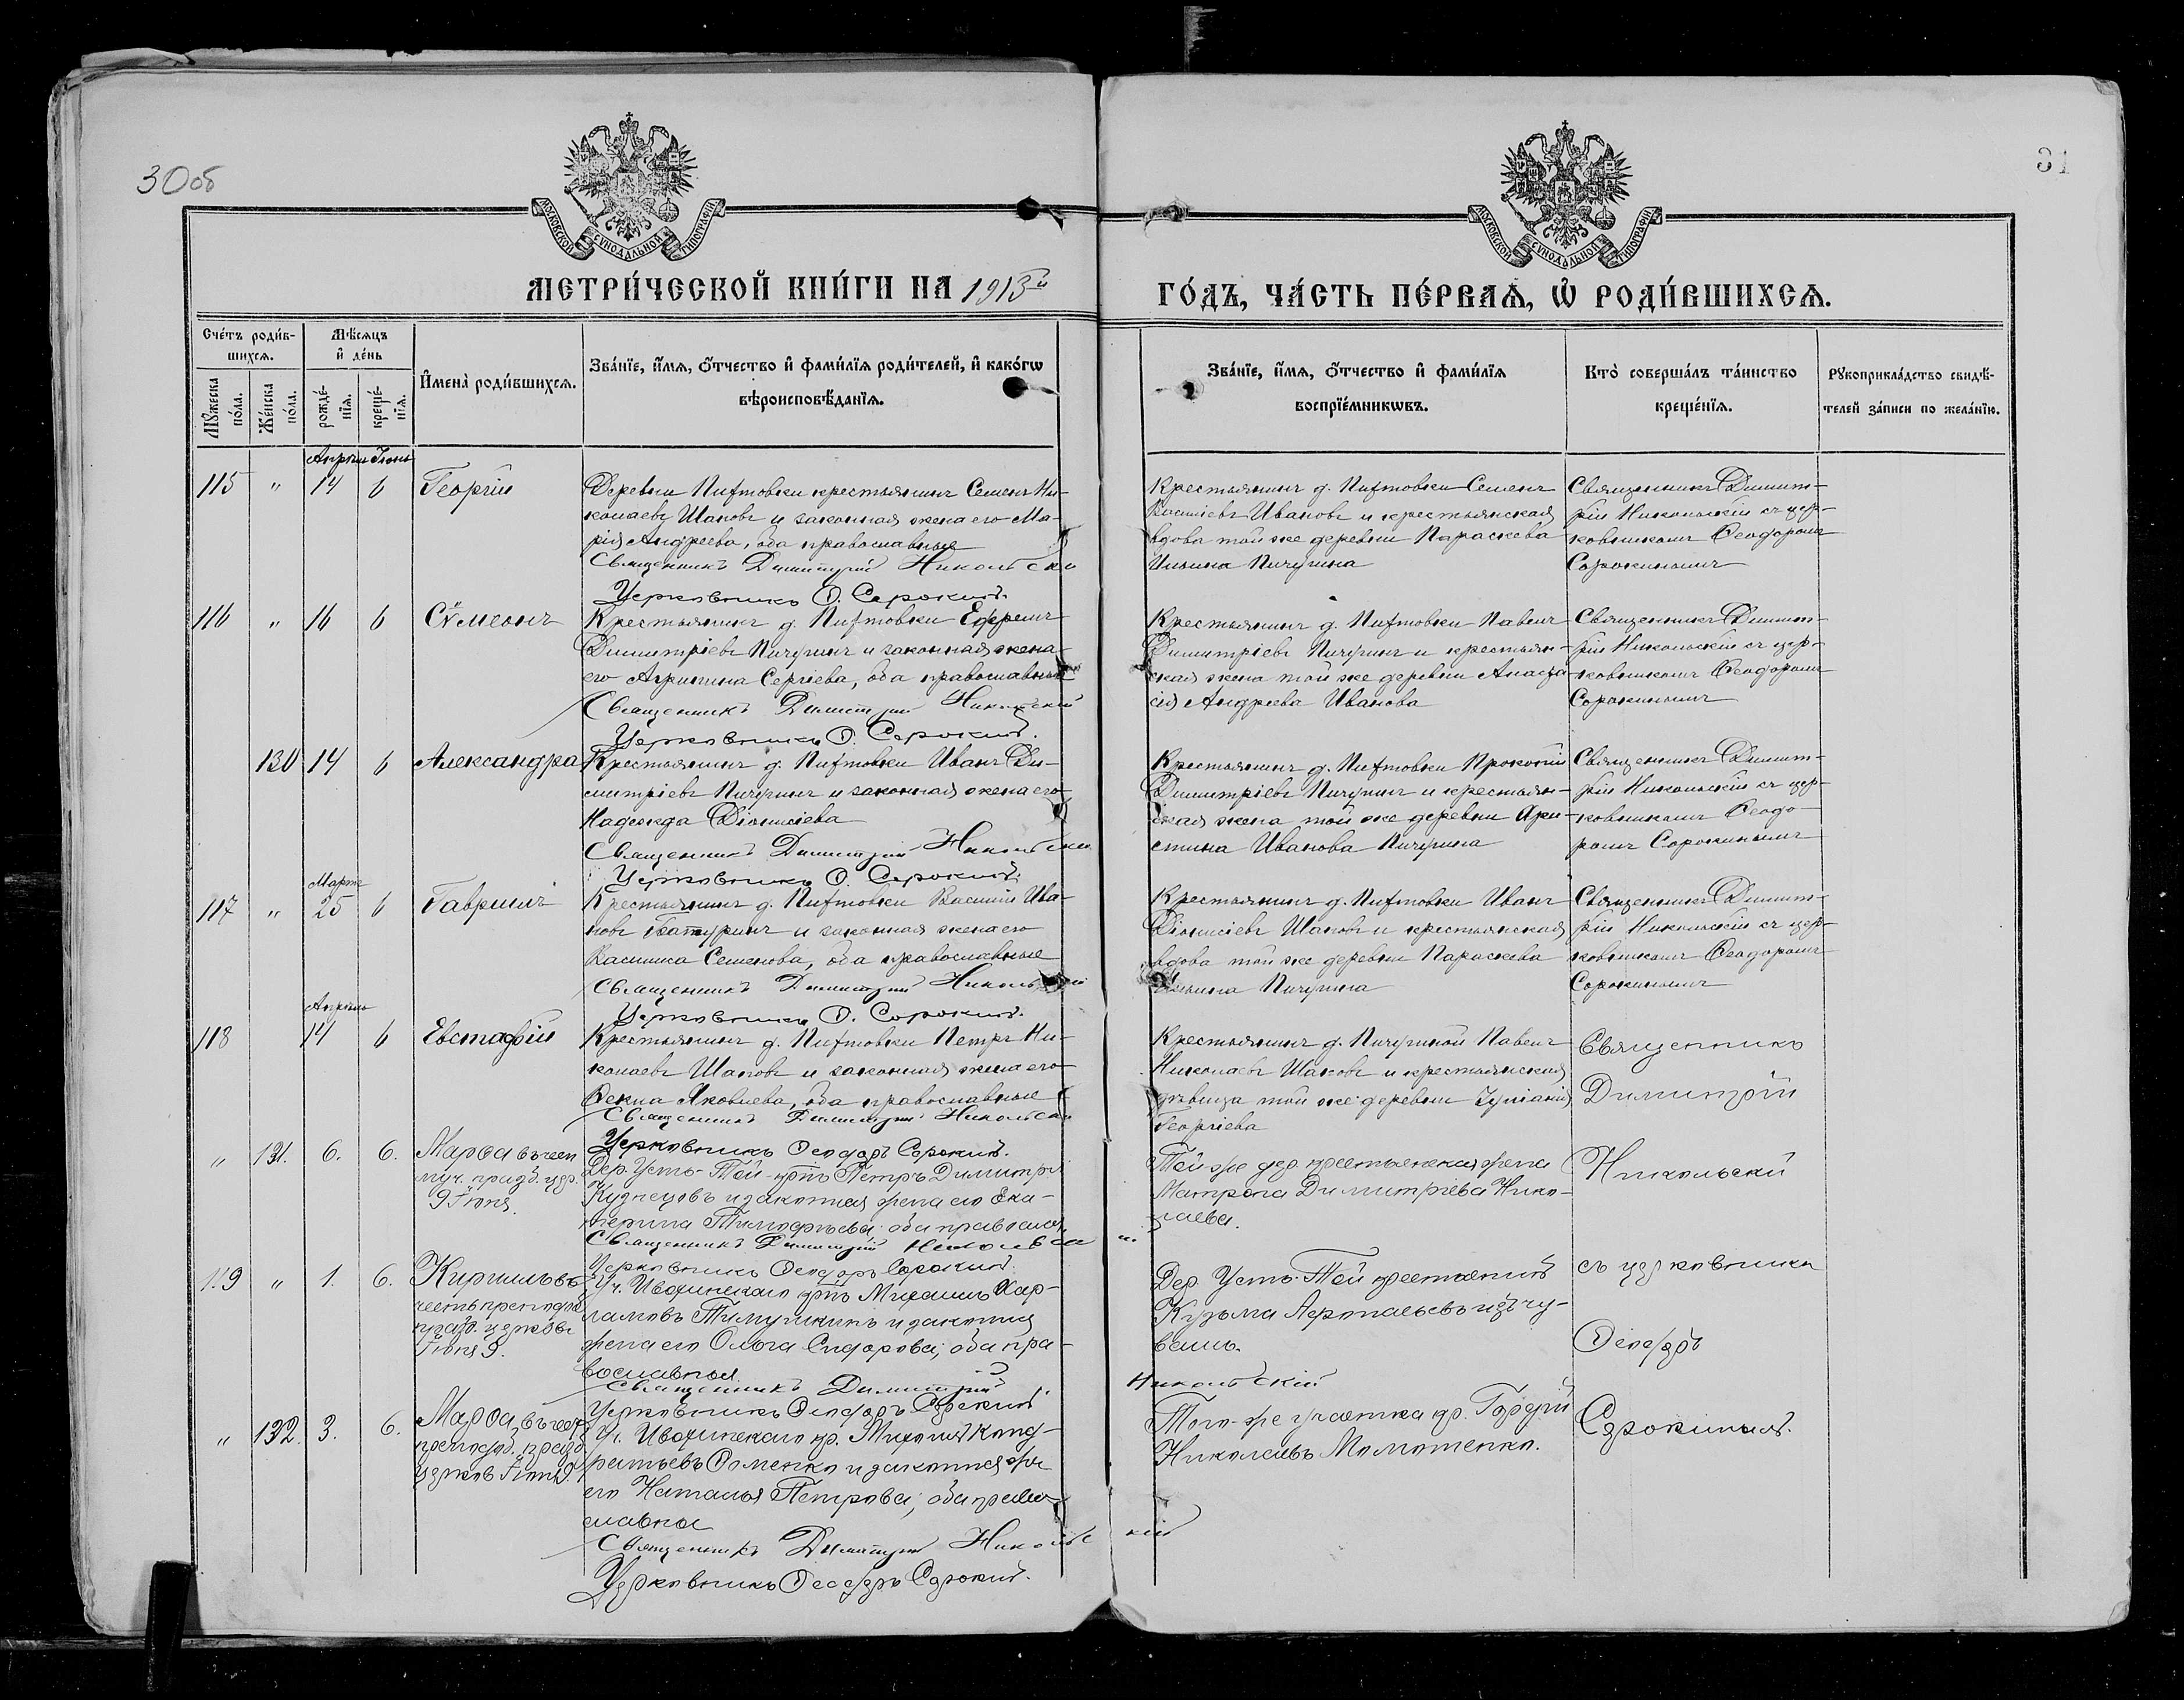 30об
31
МОСКОВСКОЙ СѴНОДАЛЬНОЙ ТИПОГРАФІИ
МОСКОВСКОЙ СѴНОДАЛЬНОЙ ТИПОГРАФІИ
МЕТРИ́ЧЕСКОЙ КНИ́ГИ НА 1913й
ГО́ДЪ, ЧА́СТЬ ПЕ́РВАѦ, Ѡ҆ РОДИ́ВШИХСѦ.
Сче́тъ роди́в-
шихсѧ.
Мѣ́сѧцъ
и҆ де́нь
Мꙋ́жеска
по́ла.
Же́нска
по́ла.
рожде́-
нїѧ.
креще́-
нїѧ.
И҆мена̀ роди́вшихсѧ.
Зва́нїе, и҆́мѧ, ѻ҆́тчество и҆ фами́лїѧ роди́телей, и҆ како́гѡ
вѣроисповѣ́данїѧ.
Зва́нїе, и҆́мѧ, ѻ҆́тчество и҆ фами́лїѧ
воспрїе́мникѡвъ.
Кто̀ соверша́лъ та́инство
креще́нїѧ.
Рꙋкоприкла́дство свидѣ́-
телей за́писи по жела́нїю.
Апрѣль Іюнь
115 " 14 6 Георгій
Деревни Пихтовки крестьянинъ Семенъ Ни-
колаевъ Шаповъ и законная жена его Ма-
рія Андреева, оба православные
Священникъ Димитрій Никольскій
Церковникъ Ѳ. Сорокинъ.
Крестьянинъ д. Пихтовки Семенъ
Василіевъ Ивановъ и крестьянская
вдова той же деревни Параскева
Ильина Пичугина
Священникъ Димит-
рій Никольскій съ цер-
ковникомъ Ѳеодоромъ
Сорокинымъ
116 " 16 6 Сѷмеонъ
Крестьянинъ д. Пихтовки Ефремъ
Димитріевъ Пичугинъ и законная жена
его Агрипина Сергіева, оба православные
Священникъ Димитрій Никольскій
Церковникъ Ѳ. Сорокинъ.
Крестьянинъ д. Пихтовки Павелъ
Димитріевъ Пичугинъ и крестьян-
ская жена той же деревни Анаста
сія Андреева Иванова
Священникъ Димит-
рій Никольскій съ цер-
ковникомъ Ѳеодоромъ
Сорокинымъ
130 14 6 Александра
Крестьянинъ д. Пихтовки Иванъ Ди-
митріевъ Пичугинъ и законная жена его
Надежда Діонисіева
Священникъ Димитрій Никольскій
Церковникъ Ѳ. Сорокинъ.
Крестьянинъ д. Пихтовки Прокопій
Димитріевъ Пичугинъ и крестьян-
ская жена той же деревни Хри-
стина Иванова Пичугина
Священникъ Димит-
рій Никольскій съ цер-
ковникомъ Ѳеодо-
ромъ Сорокинымъ
Мартъ
117 " 25 6 Гавриилъ
Крестьянинъ д. Пихтовки Василій Ива-
новъ Батуринъ и законная жена его
Василиса Семенова, оба православные
Священникъ Димитрій Никольскій
Церковникъ Ѳ. Сорокинъ.
Крестьянинъ д. Пихтовки Иванъ
Діонисіевъ Шаповъ и крестьянская
вдова той же деревни Параскева
Ильина Пичугина
Священникъ Димит-
рій Никольскій съ цер-
ковникомъ Ѳеодоромъ
Сорокинымъ
Апрѣль
118 14 6 Евстафій
Крестьянинъ д. Пихтовки Петръ Ни-
колаевъ Шаповъ и законная жена его
Ѳекла Яковлева, оба православные
Священникъ Димитрій Никольскій
Церковникъ Ѳеодоръ Сорокинъ.
Крестьянинъ д. Пичугиной Павелъ
Николаевъ Шаповъ и крестьянская
дѣвица той же деревни Іуліанія
Георгіева
Священникъ
Димитрій
" 131. 6. 6. Марѳа въ чест
муч. празд. цер.
9 Іюня.
Дер. Усть-Той крнъ Петръ Димитр.
Кузнецовъ и законная жена его Ека-
терина Тимофѣева; оба православ.
Священникъ Димитрій Никольскій
Церковникъ Ѳеодоръ Сорокинъ.
Той же дер. крестьянская жена
Матрона Димитріева Нико-
лаева.
Никольскій
119 " 1. 6. Кириллъ въ
честь преподоб.
празд. церковью
Іюня 9.
Уч. Ивонинскаго крнъ Михаилъ Хар-
ламовъ Тимушкинъ и законная
жена его Ольга Сидорова; оба пра-
вославныя.
Священникъ Димитрій Никольскій
Церковникъ Ѳеодоръ Сорокинъ
Дер. Усть-Той крестьянинъ
Кузьма Аѳонасьевъ изъ чу-
вашъ.
съ церковникомъ
Ѳеодоръ
" 132. 3. 6. Марѳа, въ чест
преподоб. празд.
церков Іюня 9.
Уч. Ивонинскаго кр. Михаилъ Конд-
ратьевъ Ѳоменко и законная же
его Наталья Петрова; оба право-
славны
Священникъ Димитрій Никольскій
Церковникъ Ѳеодоръ Сорокинъ.
Того-же участка кр. Гордѣй
Николаевъ Момотенко.
Сорокинымъ.